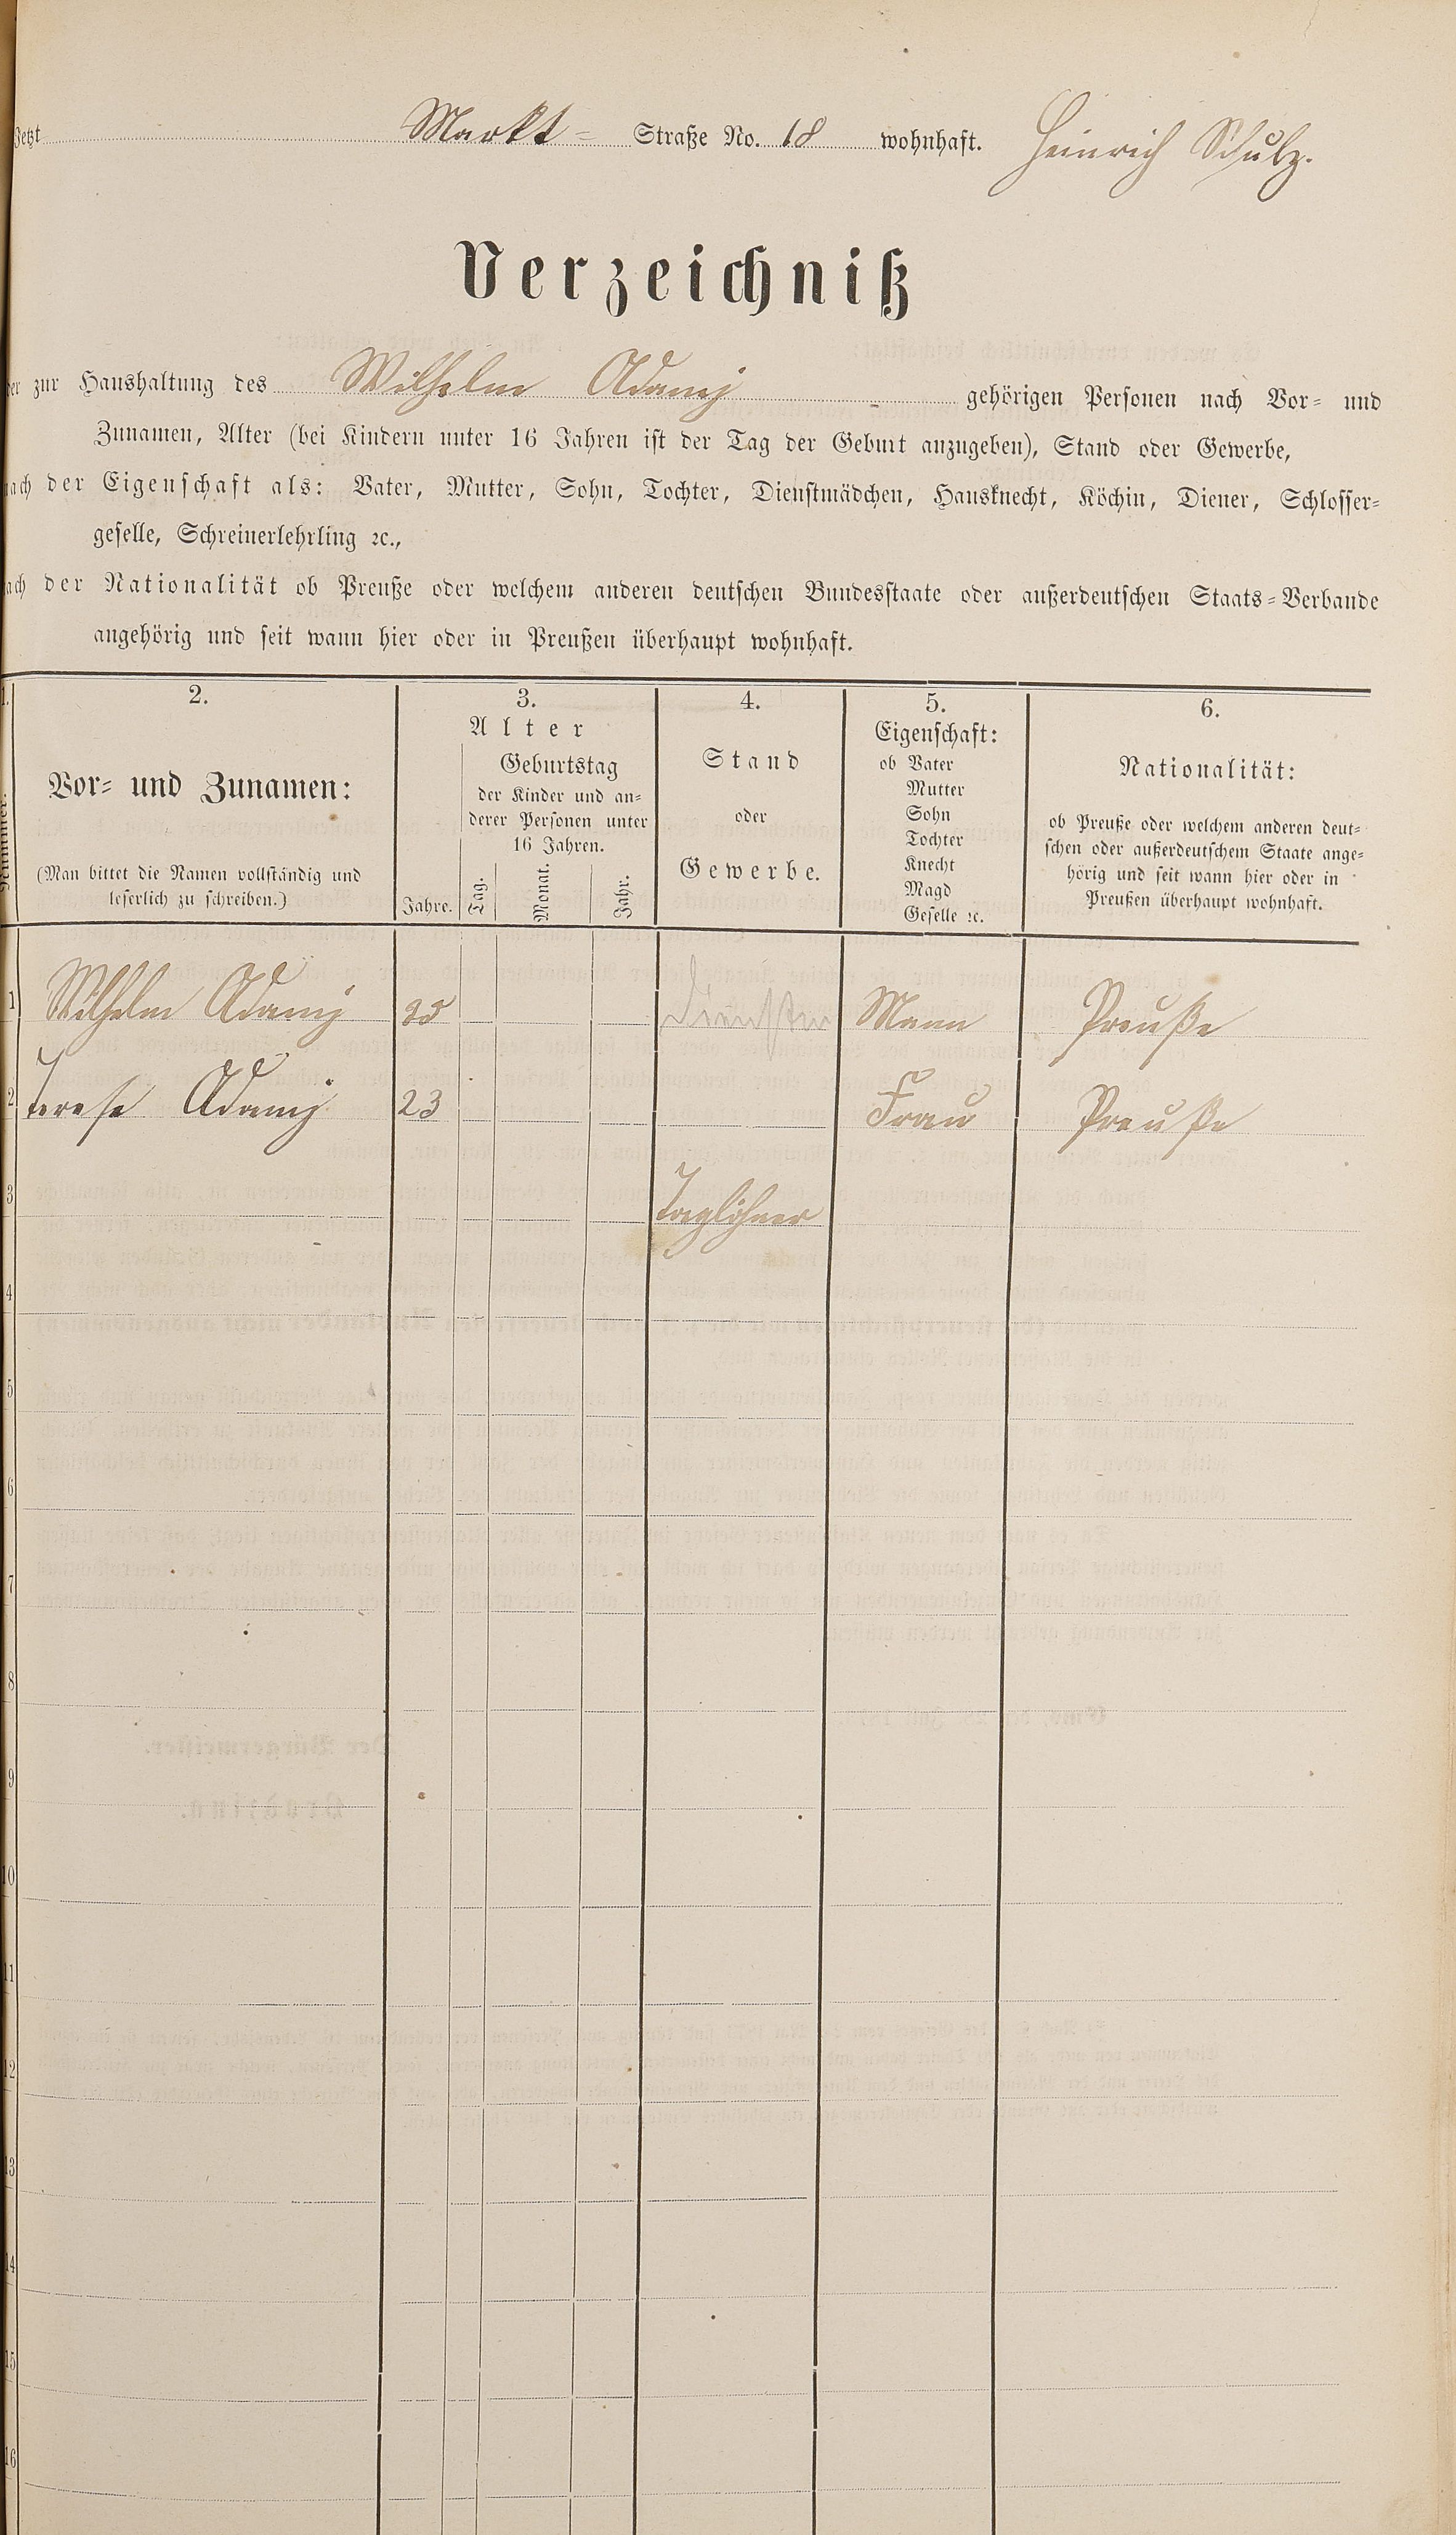 Jetzt Markt= Straße No. 18 wohnhaft. Heinrich Schulz.
Verzeichniß
der zur Haushaltung des Wilhelm Adamy gehörigen Personen nach Vor= und
Zunamen, Alter (bei Kindern unter 16 Jahren ist der Tag der Geburt anzugeben), Stand oder Gewerbe,
nach der Eigenschaft als: Vater, Mutter, Sohn, Tochter, Dienstmädchen, Hausknecht, Köchin, Diener, Schlosser=
geselle, Schreinerlehrling ꝛc.,
nach der Nationalität ob Preuße oder welchem anderen deutschen Bundesstaate oder außerdeutschen Staats=Verbande
angehörig und seit wann hier oder in Preußen überhaupt wohnhaft.
1.
Nummer.
2.
Vor= und Zunamen:
(Man bittet die Namen vollständig und
leserlich zu schreiben.)
3.
Alter
Jahre.
Geburtstag
der Kinder und an=
derer Personen unter
16 Jahren.
Tag.
Monat.
Jahr.
4.
Stand
oder
Gewerbe.
5.
Eigenschaft:
ob Vater
Mutter
Sohn
Tochter
Knecht
Magd
Geselle ꝛc.
6.
Nationalität:
ob Preuße oder welchem anderen deut=
schen oder außerdeutschem Staate ange=
hörig und seit wann hier oder in
Preußen überhaupt wohnhaft.
1 Wilhelm Adamy Mann Preuße
2 Terese Adamy 23 Frau Preuße
3 Taglöhner
4
5
6
7
8
9
10
11
12
13
14
15
16